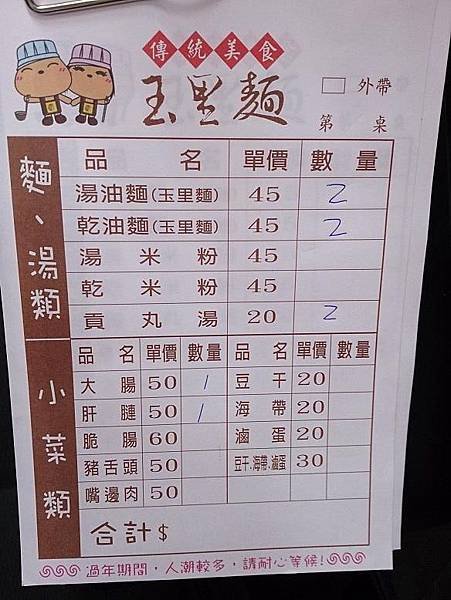 傳統美食
玉里麵
外帶
第 桌
麵、湯類
品名 單價 數量
湯油麵(玉里麵) 45 2
乾油麵(玉里麵) 45 2
湯米粉 45
乾米粉 45
貢丸湯 20 2
小菜類
品名 單價 數量 品名 單價 數量
大腸 50 1 豆干 20
肝腱 50 1 海帶 20
脆腸 60 滷蛋 20
豬舌頭 50 豆干、海帶、滷蛋 30
嘴邊肉 50
合計$
過年期間，人潮較多，請耐心等候!